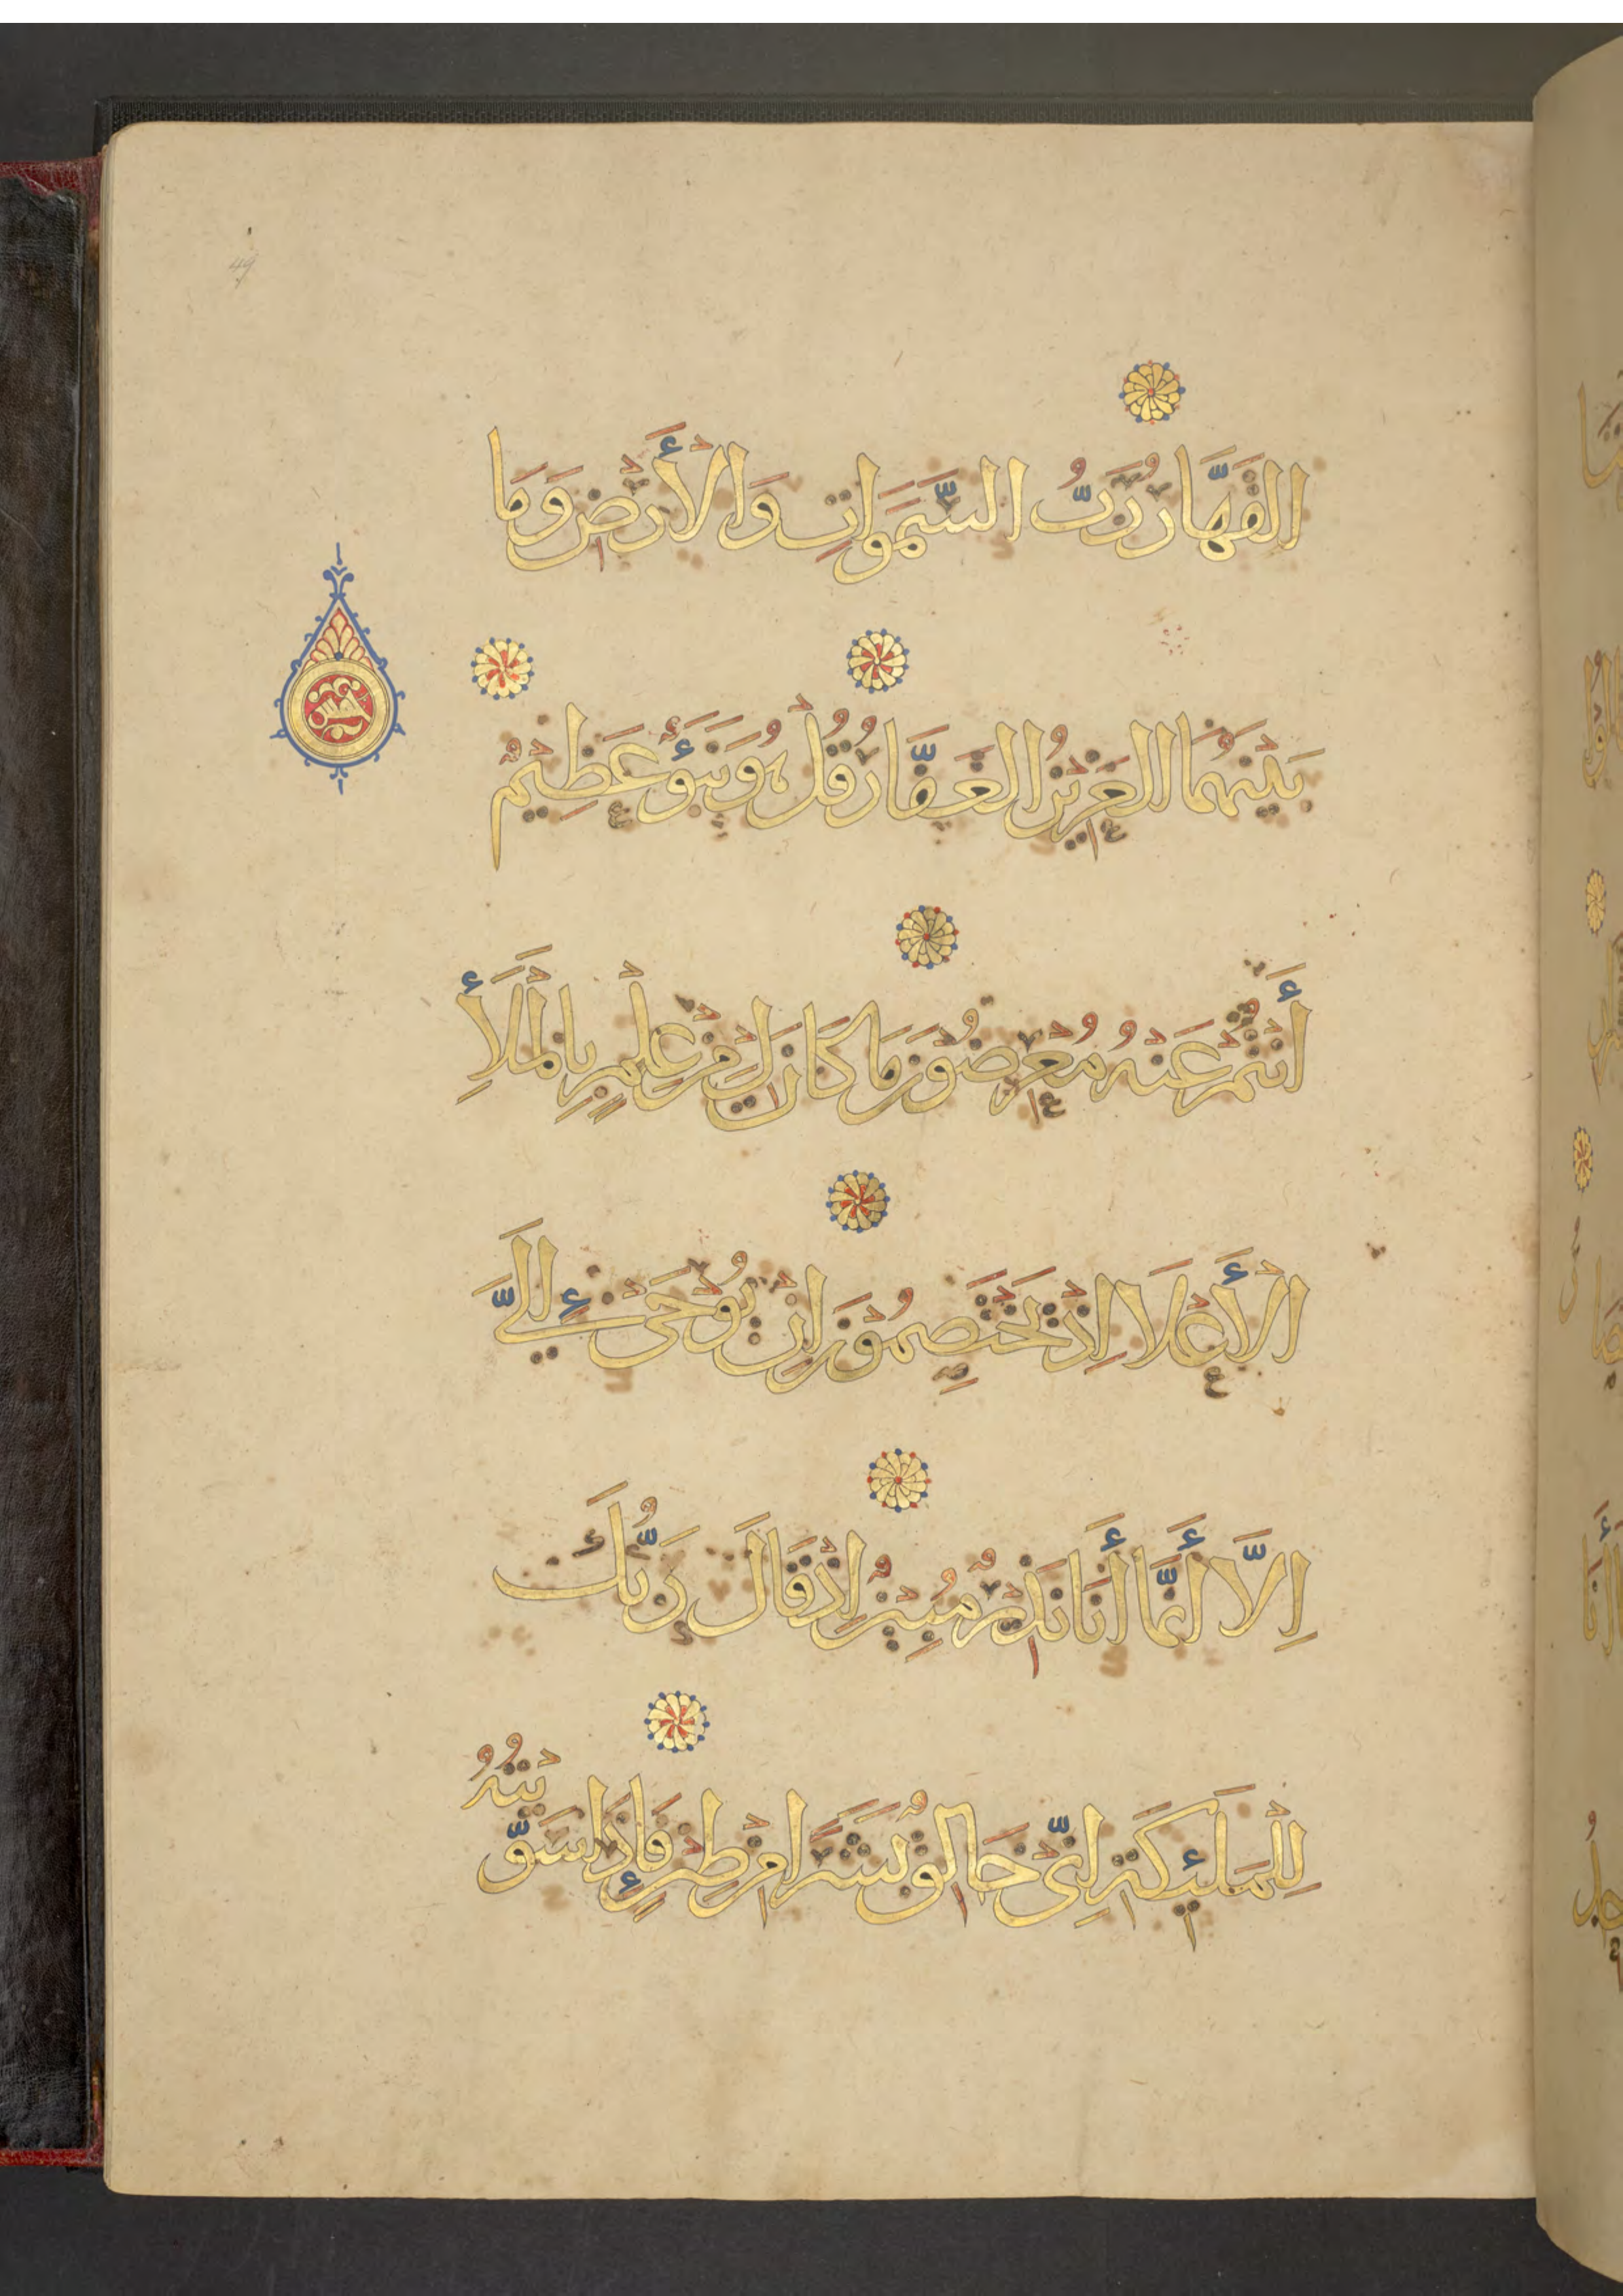 القَهَّارُ رَبُّ السَّمَوَاتِ وَالْأَرْضِ وَمَا
بَيْنَهُمَا الْعَزِيزُ الْغَفَّارُ قُلْ هُوَ نَبَؤٌ عَظِيمٌ
خمس
أَنْتُمْ عَنْهُ مُعْرِضُونَ مَا كَانَ لِي مِنْ عِلْمٍ بِالْمَلَأِ
الْأَعْلَا إِذْ يَخْتَصِمُونَ إِنْ يُوحَىٰ إِلَيَّ
إِلَّا أَنَّمَا أَنَا نَذِيرٌ مُبِينٌ إِذْ قَالَ رَبُّكَ
لِلْمَلَئِكَةِ إِنِّي خَالِقٌ بَشَرًا مِنْ طِينٍ فَإِذَا سَوَّيْتُهُ
49